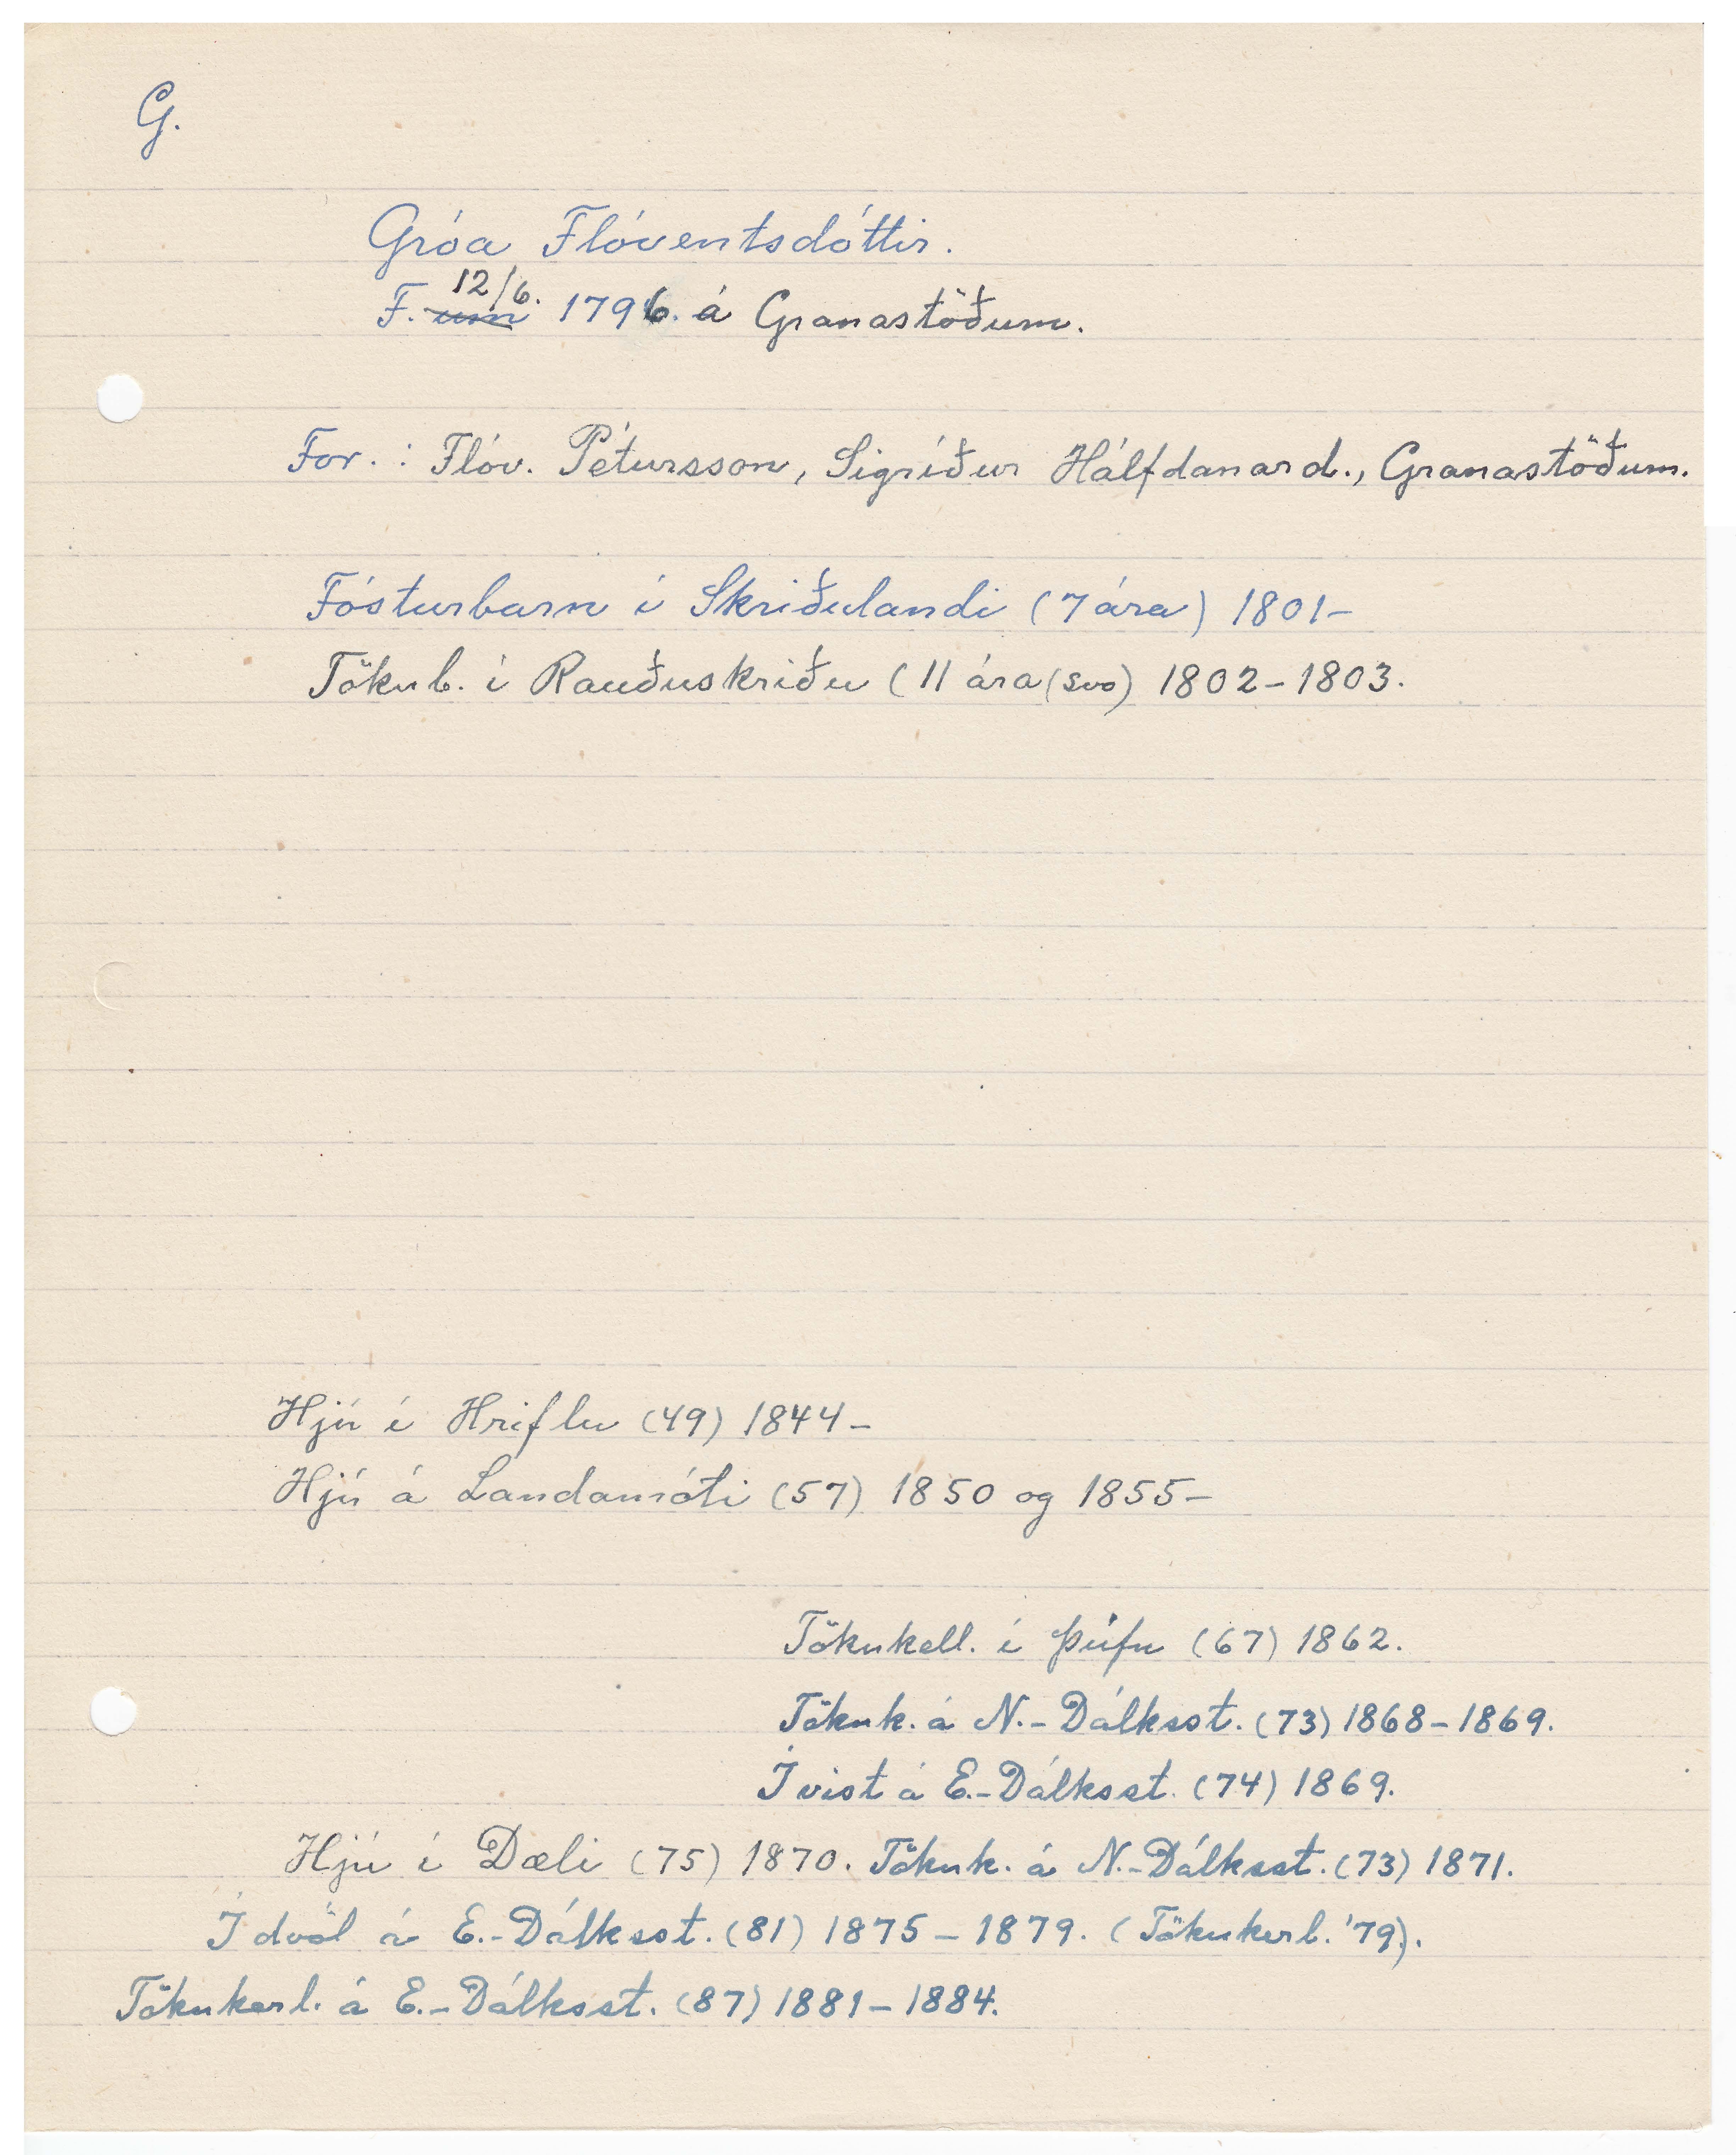 G.
Gróa Flóventsdóttir.
12/6.
F. um 1796. á Granastöðum.
For.: Flóv. Pétursson, Sigríður Hálfdanard., Granastöðum.
Fósturbarn í Skriðulandi (7 ára) 1801-
Tökub. í Rauðuskriðu (11 ára (svo) 1802-1803.
Hjú í Hriflu (49) 1844-
Hjú á Landamóti (57) 1850 og 1855-
Tökukell. í Þúfu (67) 1862.
Tökuk. á N.-Dálksst. (73) 1868-1869.
Í vist á E.-Dálksst. (74) 1869.
Hjú í Dæli (75) 1870. Tökuk. á N.-Dálksst. (73) 1871.
Í dvöl á E.-Dálksst. (81) 1875-1879. (Tökukerl. '79).
Tökukerl. á E.-Dálksst. (87) 1881-1884.